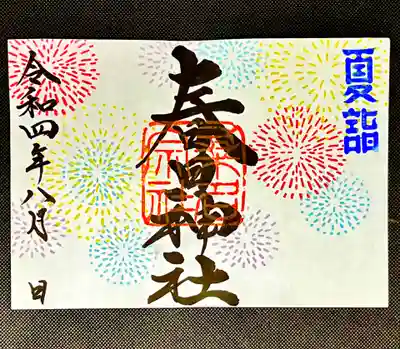 夏詣
春日神社
令和四年八月 日